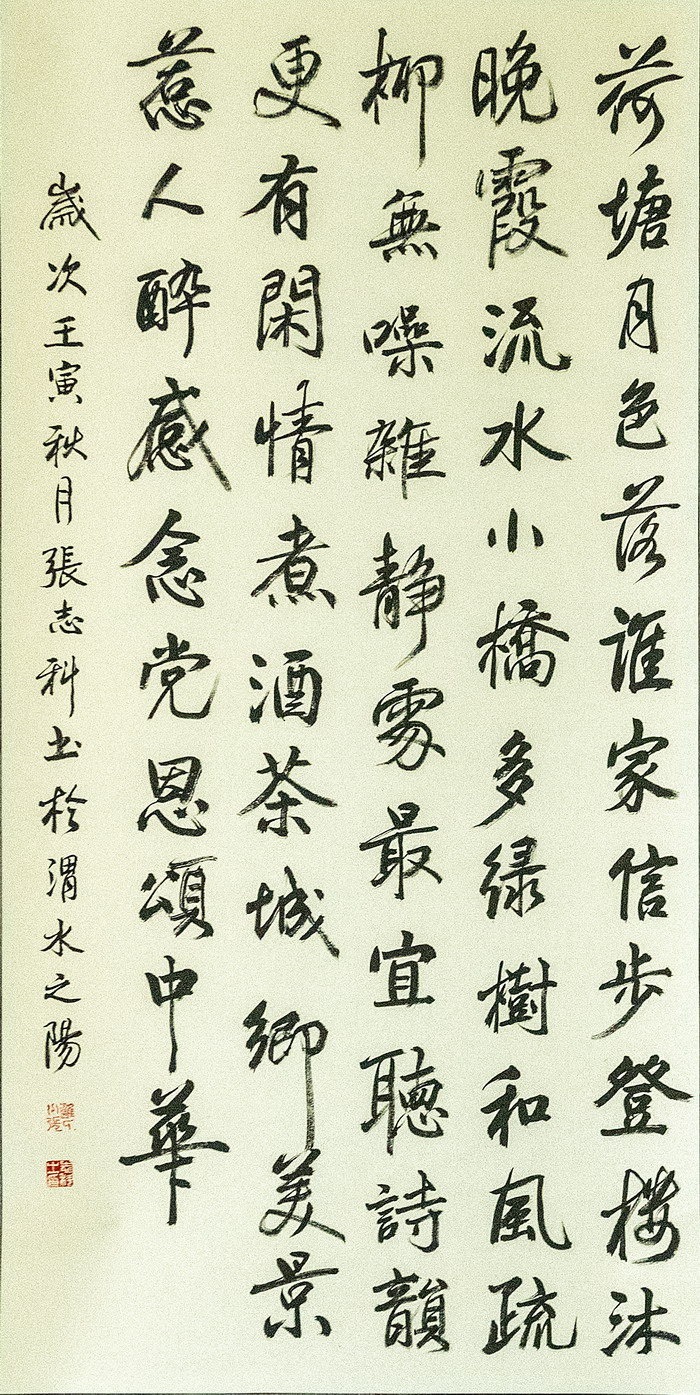 荷塘月色落誰家信步登楼沐
晚霞流水小橋多緑樹和風疏
柳無噪雜静霧最宜聽詩韻
更有閑情煮酒茶城鄉美景
惹人醉感念党恩頌中華
歲次壬寅秋月張志科书於渭水之陽